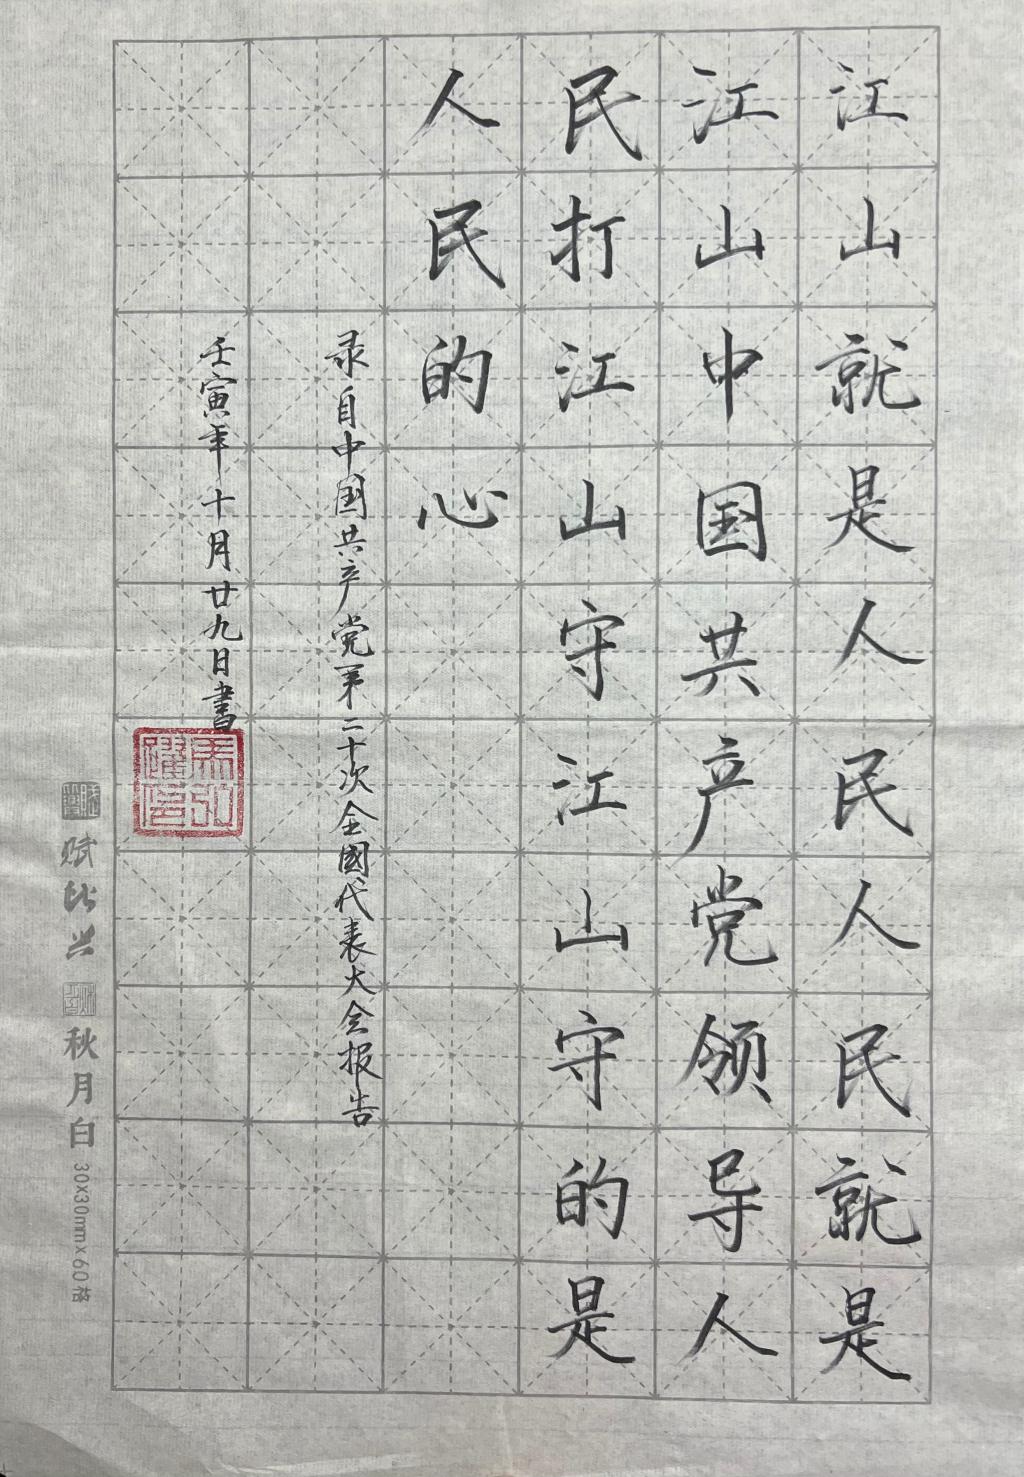 江山就是人民人民就是
江山中国共产党领导人
民打江山守江山守的是
人民的心
录自中国共产党第二十次全國代表大会报告
壬寅年十月廿九日書
赋比兴
秋月白
30x30mmx60格